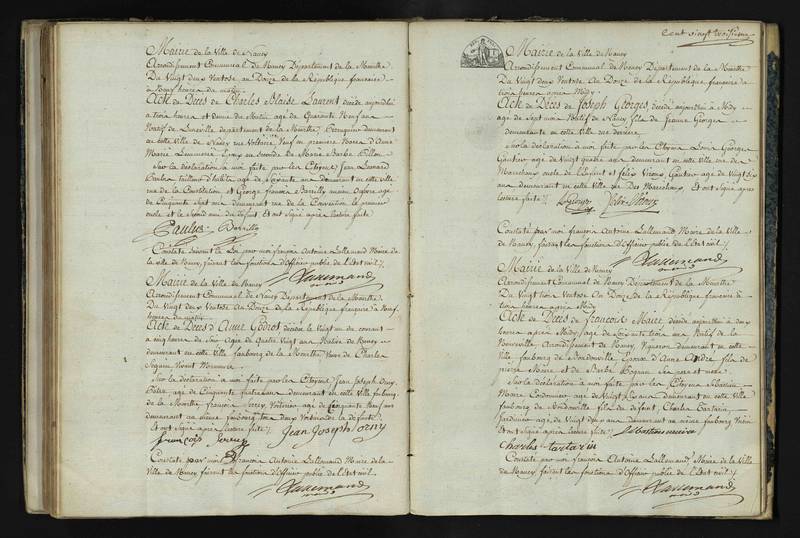 Mairie de la Ville de Nancy
Arrondissement Communal de Nancy Département de la Meurthe
Du Vingt deux Ventose an Douze de la République française à
neuf heures du matin
Acte de Décès de Charles Blaise Laurent décédé aujourdhui
a trois heures et demie du Matin age de Quarante Neuf ans
Natif de Luneville departement de la Meurthe, Perruquier demeurant
en cette Ville de Nancy rue Voltaire, Veuf en premiere Noces d'Anne
Marie et en seconde de Marie Barbe
Sur la déclaration à moi faite par les Citoyens Jean Leonard
d'habits age de Soixante ans demeurant en cette ville
rue de la Constitution et George francois Barrilly
de Cinquante Sept ans demeurant rue de la Convention le premier
oncle et le second ami du défunt et ont Signé après lecture faite
Paulus Barrilly
Constaté suivant la Loi par moi francois Antoine Lallemand Maire de
la ville de Nancy, faisant les fonctions d'officier public de l'Etat civil
Lallemand
Mairie de la Ville de Nancy
Arrondissement Communal de Nancy Département de la Meurthe
Du Vingt deux Ventose an Douze de la République française à Neuf
heures du matin
Acte de Décès d'Anne Godros décédée le Vingt un du courant
a cinq heures du Soir age de Quatre Vingt ans Native de Nancy
demeurant en cette Ville faubourg de la Meurthe Veuve de Charles
Vivant Manœuvre
Sur la déclaration à moi faite par les Citoyens Jean Joseph Orny
age de Cinquante ans demeurant en cette Ville faubourg
de la Meurthe francois Voiturier age de Cinquante Neuf ans
demeurant au meme faubourg tous deux Voisins de la défunte
Et ont Signé après lecture faite
Jean Joseph Orny
françois
Constaté par moi francois Antoine Lallemand Maire de la
Ville de Nancy faisant les fonctions d'officier public de l'Etat civil
Lallemand
Cent vingt troisieme
Mairie de la Ville de Nancy
Arrondissement Communal de Nancy Département de la Meurthe
Du Vingt deux Ventose an Douze de la République française à
trois heures après Midy
Acte de Décès de Joseph Georges, décédé aujourdhui à Midy
age de Sept mois Natif de Nancy fils de Jeanne Georges
demeurante en cette Ville rue derriere
Sur la déclaration à moi faite par les Citoyens Louis Georges
Gantier age de Vingt quatre ans demeurant en cette Ville rue des
Marechaux oncle de l'Enfant et félix Gantier age de Vingt Six
ans demeurant en cette Ville rue Des Marechaux Et ont Signé après
lecture faite
Constaté par moi françois Antoine Lallemand Maire de la Ville
de Nancy, faisant les fonctions d'officier public de l'Etat civil
Lallemand
Mairie de la Ville de Nancy
Arrondissement Communal de Nancy Département de la Meurthe
Du Vingt trois Ventose an Douze de la République française à
trois heures après Midy
Acte de Décès de francois Maire décédé aujourdhui à deux
heures après Midy age de Soixante trois ans Natif de la
Neuveville, Arrondissement de Nancy, Vigneron demeurant en cette
Ville faubourg de Boudonville Epoux d'Anne André fils de
pierre Maire et de Barbe ses pere et mere
Sur la déclaration à moi faite par les Citoyens Mathieu
Maire Cordonnier age de Vingt ans demeurant en cette Ville
faubourg de Boudonville fils du défunt, Charles Tartarin
age de Vingt deux ans demeurant au meme faubourg Voisin
Et ont Signé après lecture faite
Charles tartarin
Constaté par moi francois Antoine Lallemand, Maire de la Ville
de Nancy faisant les fonctions d'officier public de l'Etat civil
Lallemand